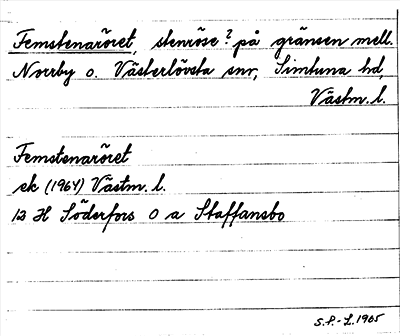 Femstenaröret, stenröse? på gränsen mell.
Norrby o. Västerlövsta snr, Simtuna hd,
Västm. l.
Femstenaröret
ek (1964) Västm. l.
12 H Söderfors 0 a Staffansbo
S.P.-L. 1965